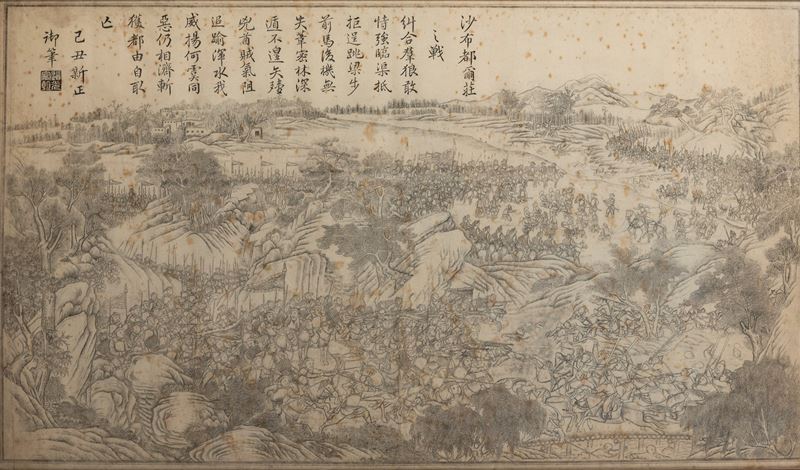 沙布都爾莊
之戰
糾合羣狼敢
恃強臨渠抵
拒逞跳梁步
前馬後機無
失葦密林深
遁不遑矢殪
兇酋賊氣阻
追踰渾水我
威揚何雲同
惡仍相濟斬
獲都由自取
亡
己丑新正
御筆